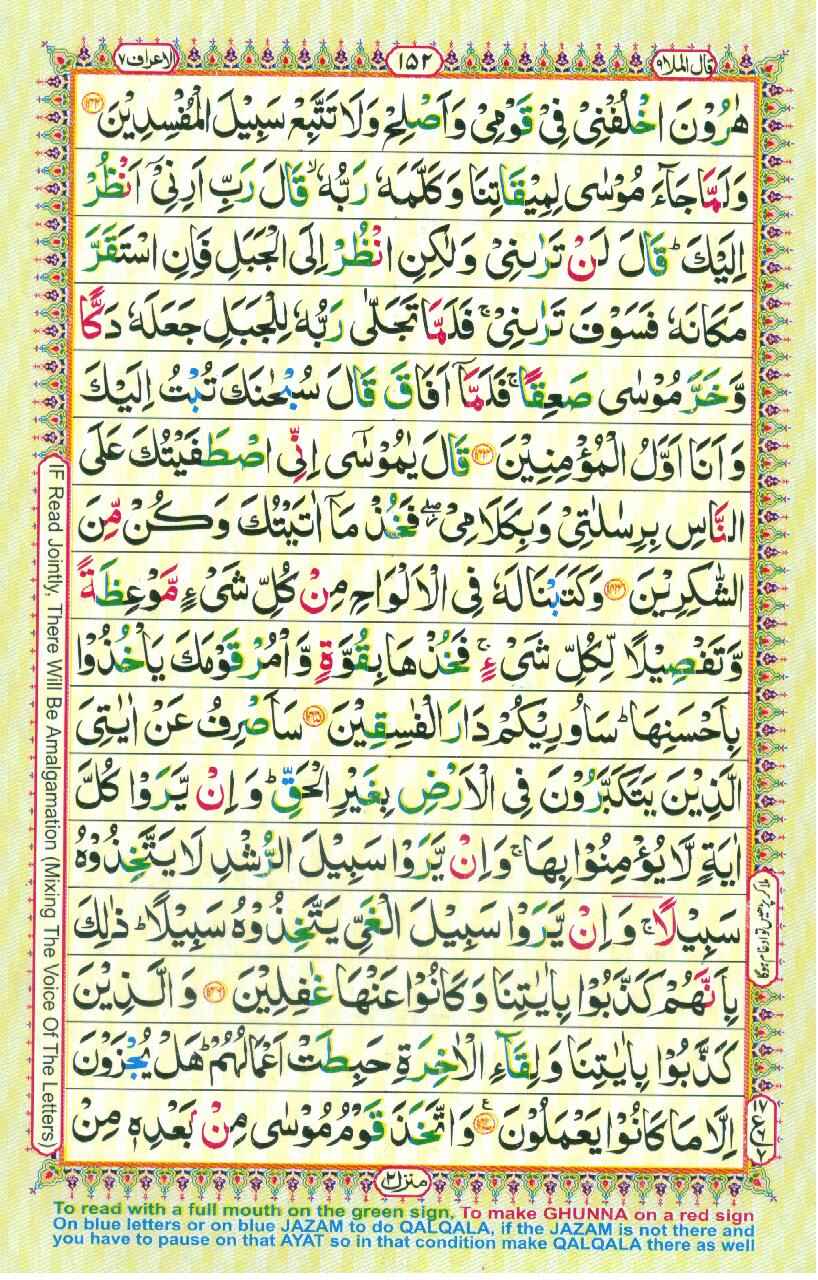 قال الملا۹
۱۵۲
الاعراف۷
هٰرُوْنَ اخْلُفْنِیْ فِیْ قَوْمِیْ وَاَصْلِحْ وَلَا تَتَّبِعْ سَبِیْلَ الْمُفْسِدِیْنَ ﴿۱۴۲﴾
وَلَمَّا جَآءَ مُوْسٰی لِمِیْقَاتِنَا وَكَلَّمَهٗ رَبُّهٗ ۙ قَالَ رَبِّ اَرِنِیْۤ اَنْظُرْ
اِلَیْكَ ؕ قَالَ لَنْ تَرٰىنِیْ وَلٰكِنِ انْظُرْ اِلَی الْجَبَلِ فَاِنِ اسْتَقَرَّ
مَكَانَهٗ فَسَوْفَ تَرٰىنِیْ ۚ فَلَمَّا تَجَلّٰی رَبُّهٗ لِلْجَبَلِ جَعَلَهٗ دَكًّا
وَّخَرَّ مُوْسٰی صَعِقًا ۚ فَلَمَّاۤ اَفَاقَ قَالَ سُبْحٰنَكَ تُبْتُ اِلَیْكَ
وَاَنَا اَوَّلُ الْمُؤْمِنِیْنَ ﴿۱۴۳﴾ قَالَ یٰمُوْسٰۤی اِنِّی اصْطَفَیْتُكَ عَلَی
النَّاسِ بِرِسٰلٰتِیْ وَبِكَلَامِیْ ۖؗ فَخُذْ مَاۤ اٰتَیْتُكَ وَكُنْ مِّنَ
الشّٰكِرِیْنَ ﴿۱۴۴﴾ وَكَتَبْنَا لَهٗ فِی الْاَلْوَاحِ مِنْ كُلِّ شَیْءٍ مَّوْعِظَةً
وَّتَفْصِیْلًا لِّكُلِّ شَیْءٍ ۚ فَخُذْهَا بِقُوَّةٍ وَّاْمُرْ قَوْمَكَ یَاْخُذُوْا
بِاَحْسَنِهَا ؕ سَاُورِیْكُمْ دَارَ الْفٰسِقِیْنَ ﴿۱۴۵﴾ سَاَصْرِفُ عَنْ اٰیٰتِیَ
الَّذِیْنَ یَتَكَبَّرُوْنَ فِی الْاَرْضِ بِغَیْرِ الْحَقِّ ؕ وَاِنْ یَّرَوْا كُلَّ
اٰیَةٍ لَّا یُؤْمِنُوْا بِهَا ۚ وَاِنْ یَّرَوْا سَبِیْلَ الرُّشْدِ لَا یَتَّخِذُوْهُ
سَبِیْلًا ۚ وَاِنْ یَّرَوْا سَبِیْلَ الْغَیِّ یَتَّخِذُوْهُ سَبِیْلًا ؕ ذٰلِكَ
بِاَنَّهُمْ كَذَّبُوْا بِاٰیٰتِنَا وَكَانُوْا عَنْهَا غٰفِلِیْنَ ﴿۱۴۶﴾ وَالَّذِیْنَ
كَذَّبُوْا بِاٰیٰتِنَا وَلِقَآءِ الْاٰخِرَةِ حَبِطَتْ اَعْمَالُهُمْ ؕ هَلْ یُجْزَوْنَ
اِلَّا مَا كَانُوْا یَعْمَلُوْنَ ﴿۱۴۷﴾ ع وَاتَّخَذَ قَوْمُ مُوْسٰی مِنْ بَعْدِهٖ مِنْ
منزل۲
IF Read Jointly, There Will Be Amalgamation (Mixing The Voice Of The Letters)
To read with a full mouth on the green sign, To make GHUNNA on a red sign
On blue letters or on blue JAZAM to do QALQALA, if the JAZAM is not there and
you have to pause on that AYAT so in that condition make QALQALA there as well